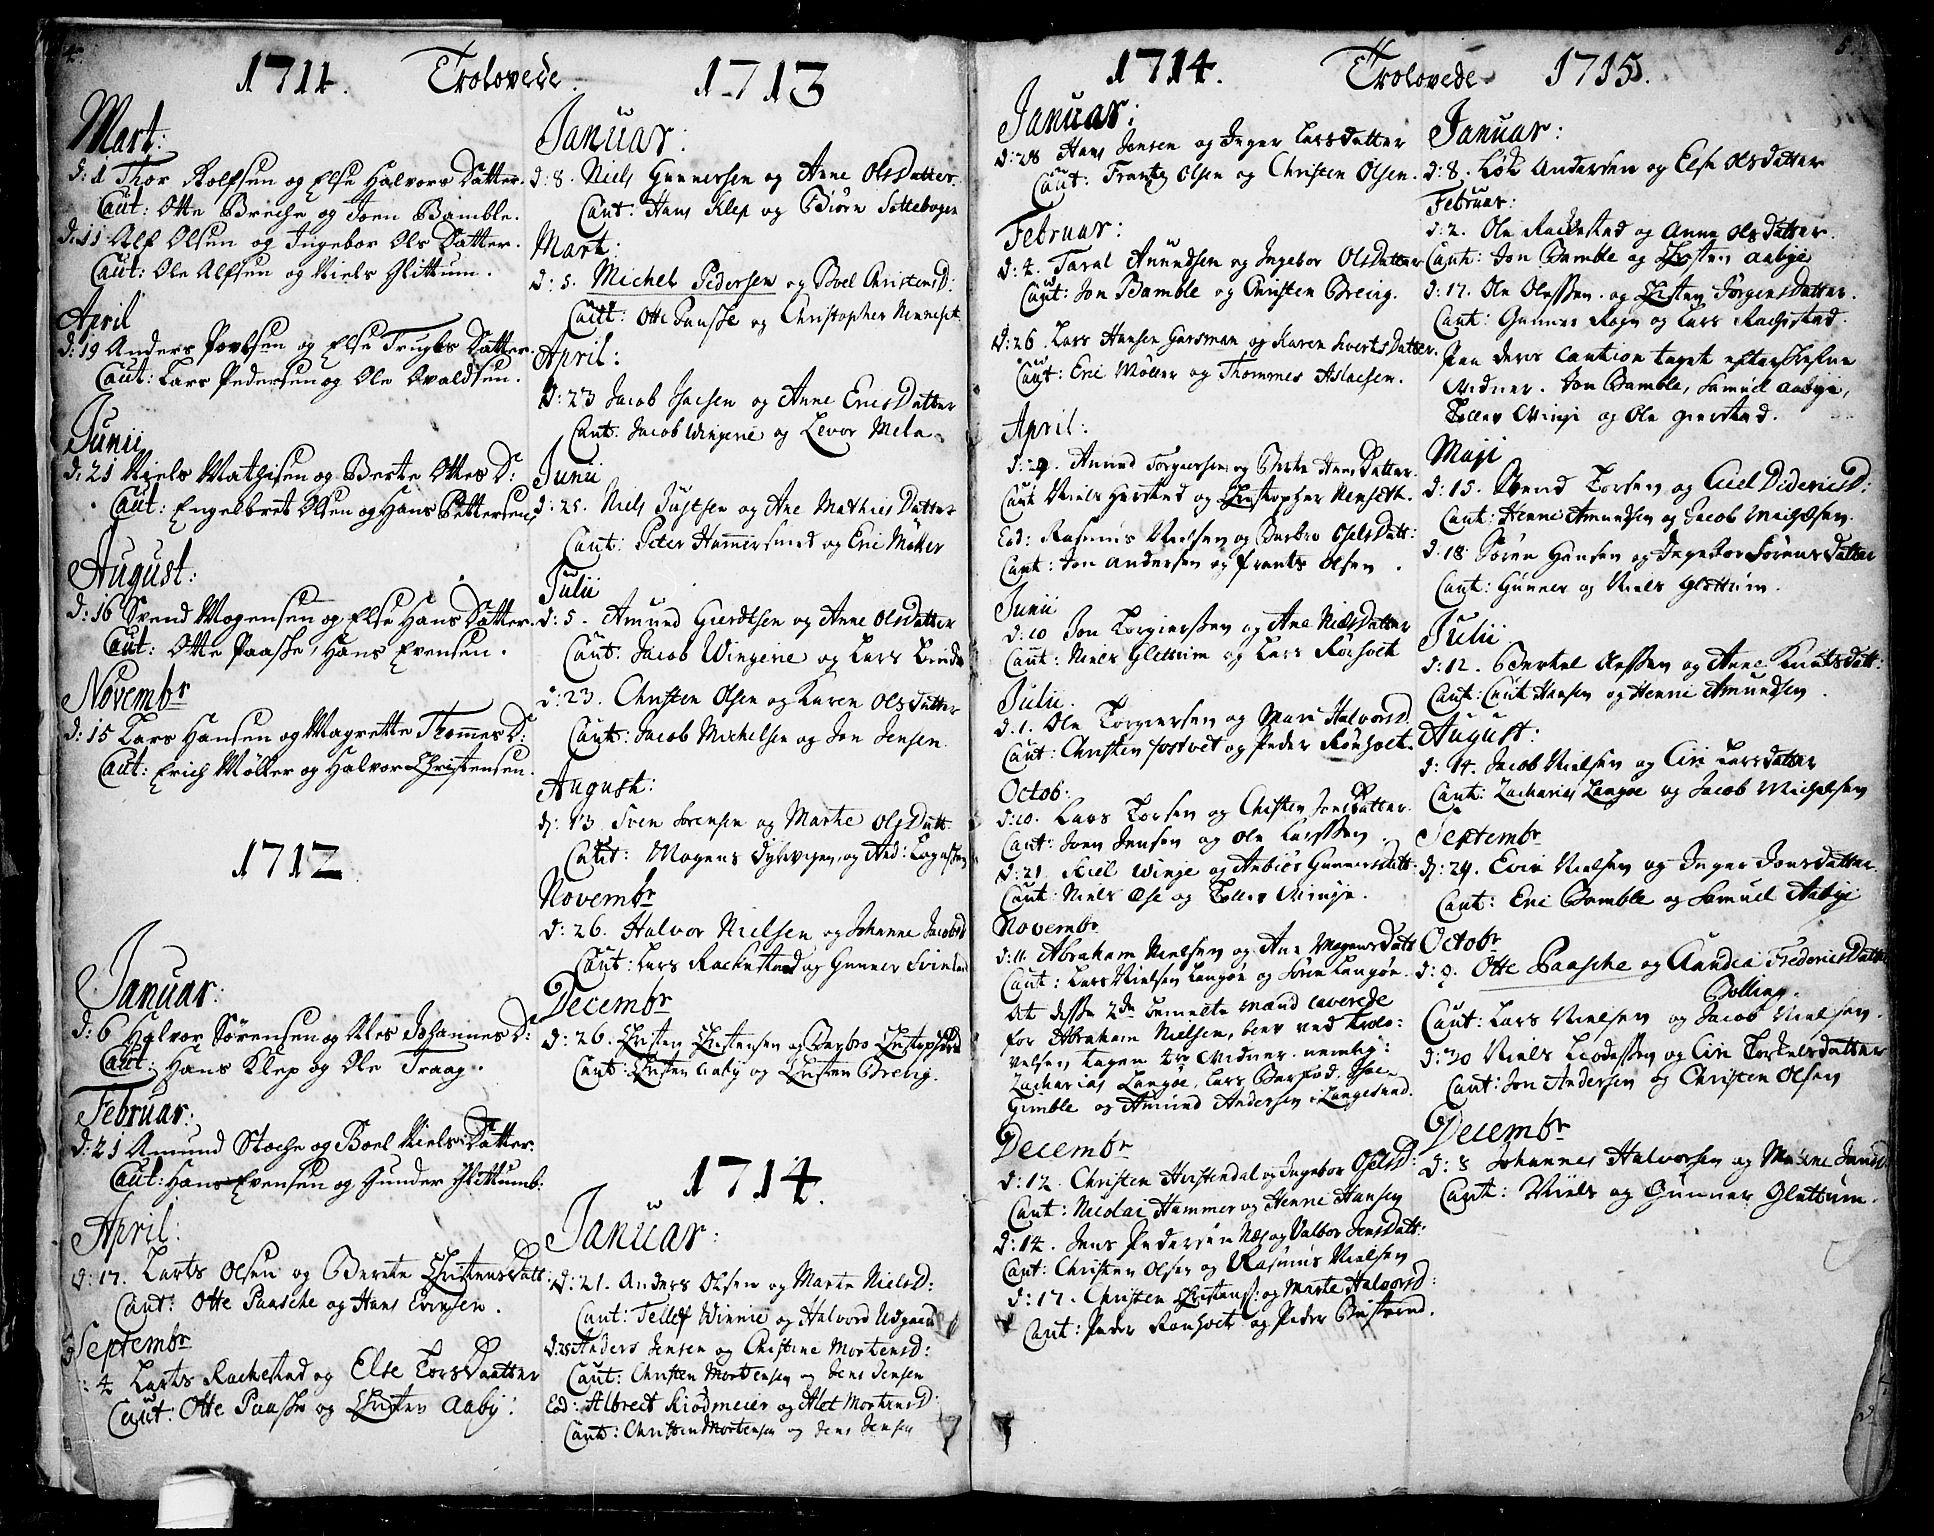 4.
1711. Trolovede.
Mart:
d: 1 Thor Rolfsen og Else Halvors Datter.
Caut: Otte Breche og Joen Bamble.
d: 11 Alf Olsen og Ingebor Ols Datter.
Caut: Ole Alfsen og Niels Glittum.
April
d: 19 Anders Povelsen og Else Trugls Datter.
Caut: Lars Pedersen og Ole Ovaldsen.
Junii
d: 21 Niels Mathisen og Berte Ottes D:
Caut: Engelbret Olsen og Hans Pettersen,
August:
d: 16 Svend Mogensen og Else Hans Datter.
Caut: Otte Paasche, Hans Evensen.
Novembr
d: 15 Lars Hansen og Magrette Thommes D:
Caut: Erich Møller og Halvor Christensen.
1712
Januar:
d: 6 Halvor Sørensen og Johannes D:
Caut: Hans Klep og Ole Traag.
Februar:
d: 21 Amund Stoche og Boel Niels Datter.
Caut: Hans Evensen og Gunder Glittumb:
April:
d: 17. Larts Olsen og Berete Christensdatt:
Caut: Otte Paasche og Hans Evensen.
Septembr
: 4 Larts Rachestad og Else Torsdaatter
Caut: Otte Paasche og Christen Aaby:
1713
Januar:
d: 8. Niels Gunnersen og Anne Olsdatter.
Caut: Hans Klep og Biørn Sattebogen
Mart:
d: 5. Michel Pedersen og Boel Christensd:
Caut: Otte Paasche og Christopher Nenneset
April:
d: 23 Jacob Isacsen og Anne Erics Datter
Caut: Jacob Wingerie og Levor Mela.
Junii
d: 25. Niels Justsen og Ane Mathies Datter
Caut: Peter Hammersmed og Eric Møller
Julii
d: 5. Amund Gierdtsen og Anne Olsdatter
Caut: Jacob Wingerie og Lars
d: 23. Christen Olsen og Karen Olsdatter
Caut: Jacob Michelsen og Jon Jensen.
August:
d: 13 Sven Sorensen og Marte Ols Datt
Caut: Mogens Dybevigen, og And:
Novembr
d: 26. Halvor Nielsen og Johanne Jacobsd
Caut: Lars Rackestad og Gunner
Decembr
d: 26. Christen Christensen og Barbro
Caut: Christen Aaby og Christen Brelig.
1714.
Januar:
d: 21. Anders Olsen og Marte Nielsd:
Caut: Tellef Winnie og Halvord Udgaard
d: 25 Anders Jensen og Christine Mortensd:
Caut: Christen Mortensen og Jens Jensen
Eod: Albrect Kiødmeier og Alet Mortensd:
Caut: Christen Mortensen og Jens Jensen
1714. Trolovede
Januar:
d: 28 Hans Jonsen og Inger Larsdatter
Caut: Frantz Olsen og Christen Olsen.
Februar:
d: 2. Taral Anundsen og Ingebor Olsdatter
Caut: Jon Bamble og Christen Breiig.
d: 26. Lars Hansen Garsman og Karen Siverts Datter.
Caut: Eric Möller og Thommes Aslacsen.
April:
d: 29. Amund Torgiersen og Berte Hans Datter.
Caut Niels Herstad og Christopher Nenseth.
Eod: Rasmus Nielsen og Barbro Oselsdatt:
Caut: Jon Andersen og Frants Olsen.
Junii
d: 10 Jon Torgiersen og Ane Nielsdatter
Caut: Niels Glettum og Lars Rönholt
Julii.
d. 1. Ole Torgiersen og Mari Halvorsd.
Caut: Christen Fostvet og Peder Rönholt.
Octob:
d: 10. Lars Torsen og Christen Jonsdatter.
Caut: Joen Jensen og Ole Larsen.
d: 21. Kiel Winge og Anbiör Gunnersdatt:
Caut: Niels Ose og Toller Vinye.
Novembr
d: 11. Abraham Nielsen og Ane Mogensdatt
Caut: Lars Nielsen Langöe og Sören Langöe.
At disse 2de bemelte mænd caverede
for Abraham Nielsen, bev ved Trolo:
velsen tagen til Vidner. nemlig:
Zacharias Langöe, Lars Barfod, Isac
Gimble og Amund Andersen i Langesund.
Decembr
d: 12. Christen Herstendal og Ingebor Oselsd:
Caut: Nicolai Hammer og Henne Hansen
d: 14. Jens Pedersen Næs og Valbor Jensdatt:
Caut: Christen Olsen og Rasmus Nielsen
d: 17. Christen Christens: og Marte Halvorsd:
Caut: Peder Ronholt og Peder
5.
1715.
Januar:
d: 8. Løk Andersen og Else Olsdatter
Februar:
d: 2. Ole Rackestad og Anne Olsdatter.
Caut: Jon Bamble og Christen Aabye
d: 17. Ole Olessen. og Christen Jørgensdatter.
Caut: Gunner Rogn og Lars Rachestad.
Paa deris caution taget efterskrefne
Vidner. Jon Bamble, Samuel Aabye,
Toller Vinye og Ole Gierstad.
Maji
d: 15. Svend Torsen og Ciel Didericsd:
Caut: Henne Amundsen og Jacob Michelsen.
d: 18. Søren Hansen og Ingebor Sörensdatter
Caut: Gunner og Niels Glettum.
Julii
d: 12. Bertel Olessen og Anne Knutsdatt:
Caut: Hansen og Henne Amundsen.
August:
d: 14. Jacob Nielsen og Ciri Larsdatter
Caut: Zacharias Langöe og Jacob Michelsen
Septembr
d: 29. Even Nielsen og Inger Jonsdatter.
Caut: Eric Bamble og Samuel Aabye
Octobr
d: 9. Otte Paasche og Aandea Fredericsdatter
Bolling.
Caut: Lars Nielsen og Jacob Nielsen.
d: 30 Niels Leodessen og Ciri Torkelsdatter
Caut: Jon Andersen og Christen Olsen
Decembr
d: 8 Johannes Halvorsen og
Caut: Niels og Gunner Glettum.